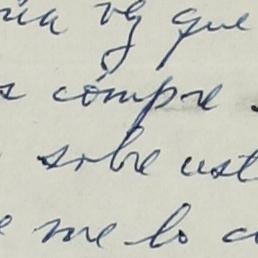 ria vez que
s cómpre
sobre ust
e me lo c